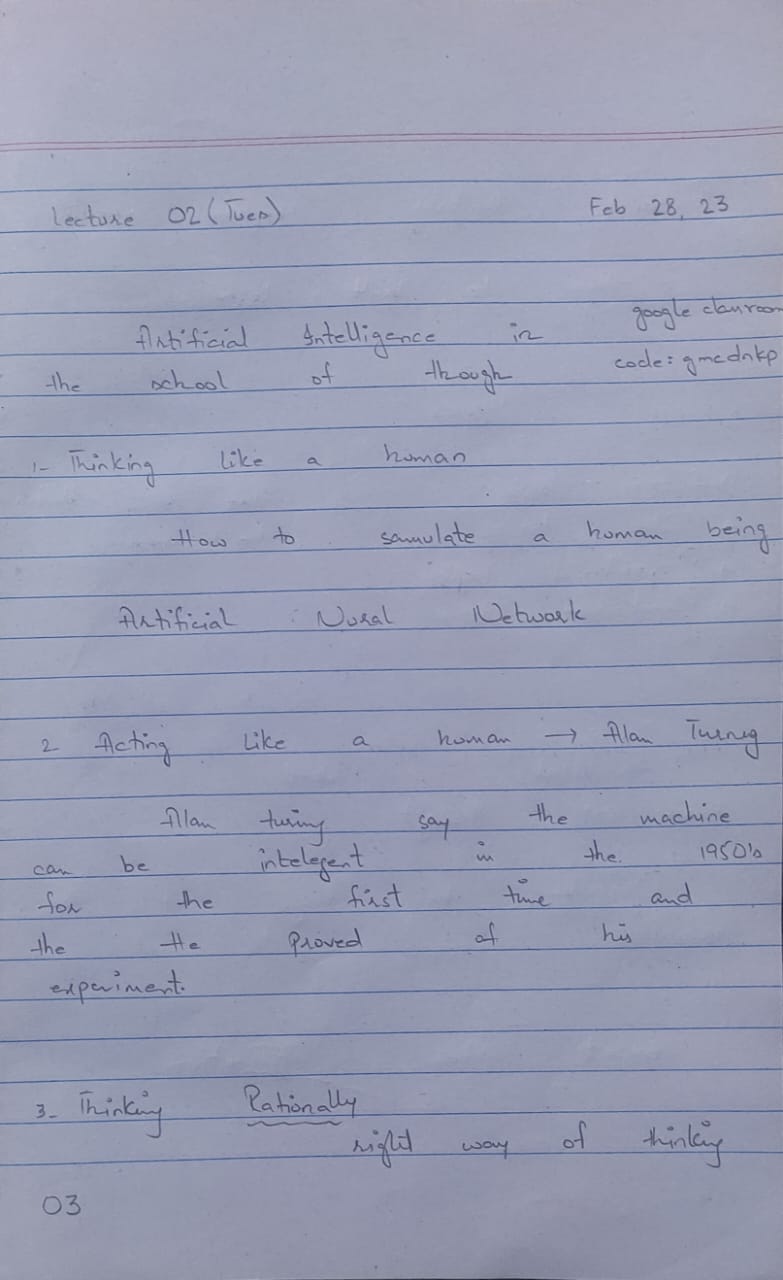 Lecture 02 (Tues) Feb 28, 23
Artificial Intelligence in google classroom
the school of though code: gmcdnkp
1- Thinking like a human
How to samulate a human being
Artificial Nural Network
2 Acting like a human → Alan Turneg
Allan turing say the machine
can be intelegent in the 1950's
for the first time and
the He proved of his
experiment.
3- Thinking Rationally
right way of thinking
03